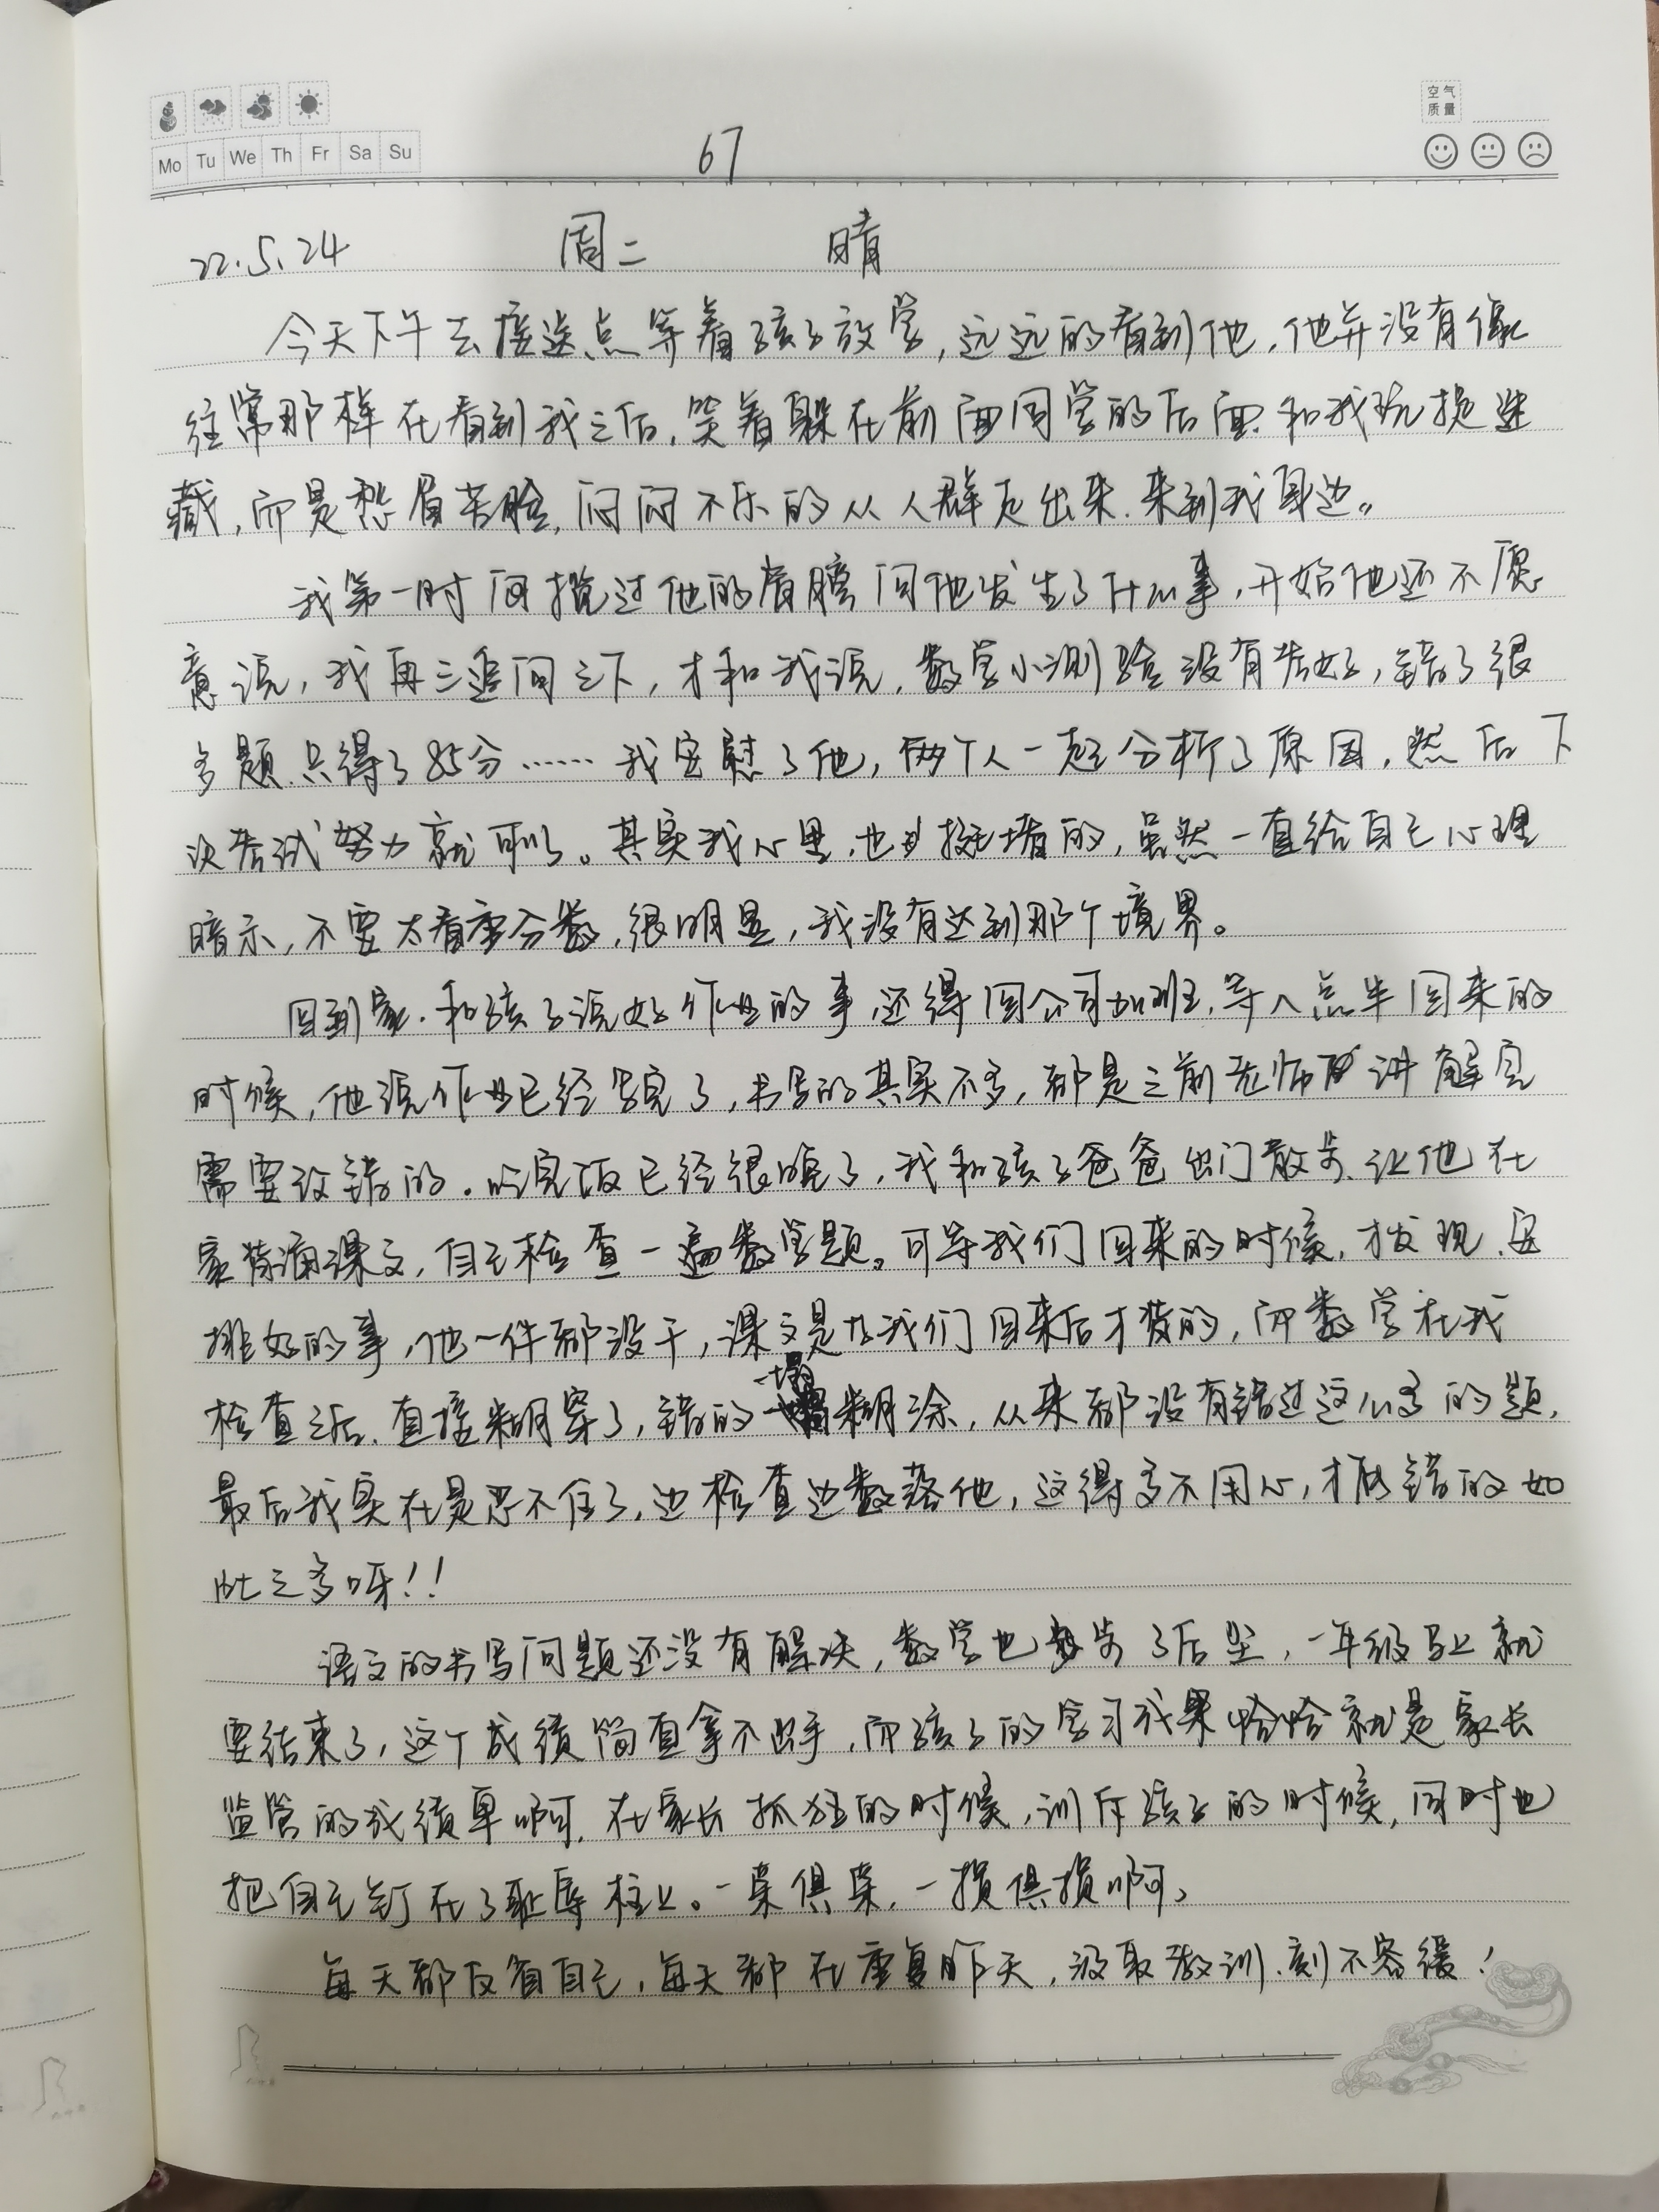 空气
质量
Mo Tu We Th Fr Sa Su
67
22.5.24 周二 晴
今天下午去接送点等着孩子放学,远远的看到他,他并没有像
往常那样在看到我之后,笑着躲在前面同学的后面和我玩捉迷
藏,而是愁眉苦脸,闷闷不乐的从人群走出来,来到我身边。
我第一时间揽过他的肩膀问他发生了什么事,开始他还不愿
意说,我再三追问之下,才和我说,数学小测验没有考好,错了很
多题,只得了85分……我安慰了他,两个人一起分析了原因,然后下
次考试努力就可以了。其实我心里,也挺堵的,虽然一直给自己心理
暗示,不要太看重分数,很明显,我没有达到那个境界。
回到家,和孩子说好作业的事,还得回公司加班,等八点半回来的
时候,他说作业已经写完了,书写的其实不多,都是之前老师讲解完
需要改错的。吃完饭已经很晚了,我和孩子爸爸出门散步,让他在
家背诵课文,自己检查一遍数学题。可等我们回来的时候,才发现,安
排好的事,他一件都没干,课文是在我们回来后才背的,而数学在我
检查之后,直接糊穿了,错的一塌糊涂,从来都没有错过这么多的题,
最后我实在是忍不住了,边检查边数落他,这得多不用心,才能错的如
此之多呀!!
语文的书写问题还没有解决,数学也步了后尘,一年级马上就
要结束了,这个成绩简直拿不出手,而孩子的学习成果恰恰就是家长
监管的成绩单啊,在家长抓狂的时候,训斥孩子的时候,同时也
把自己钉在了耻辱柱上。一荣俱荣,一损俱损啊,
每天都反省自己,每天都在重复昨天,汲取教训,刻不容缓!